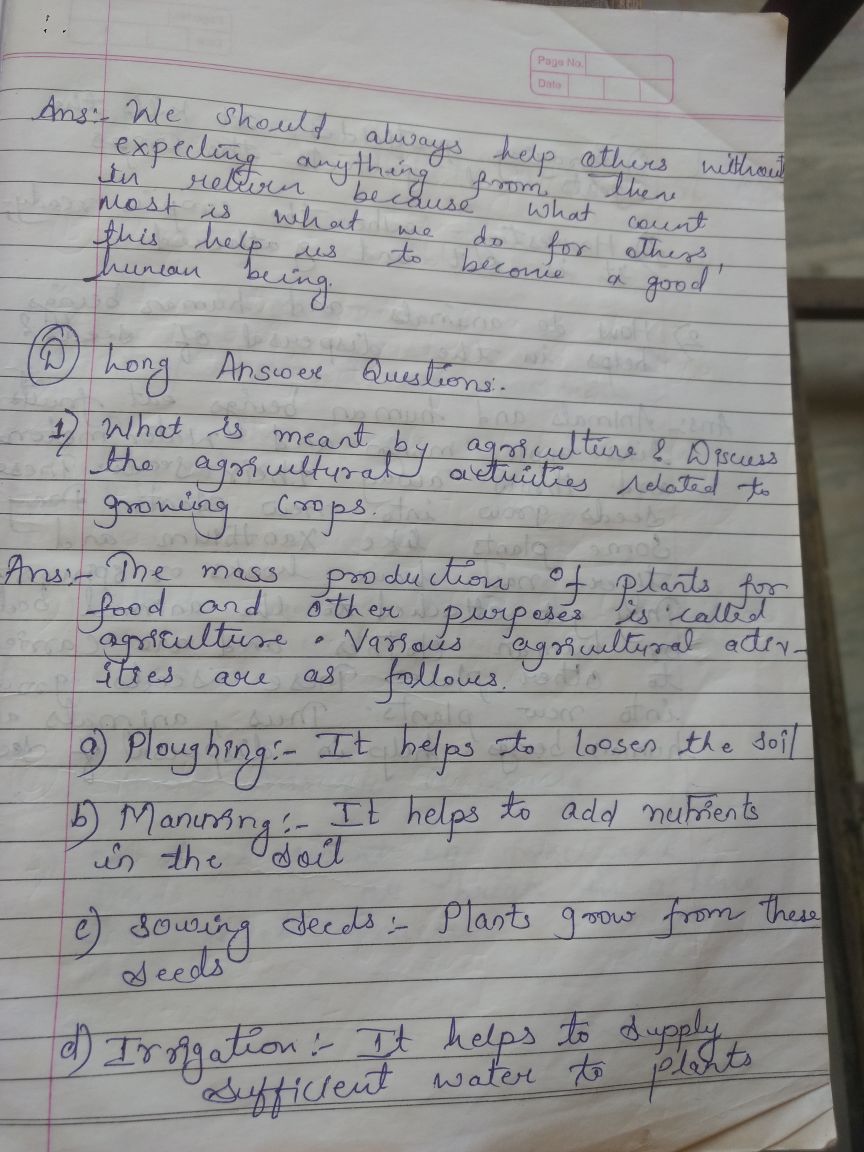 Page No.
Date
Ans:- We should always help others without
expecting anything from them
in return because what count
most is what we do for others,
this help us to become a good
human being.
D Long Answer Questions.
1) What is meant by agriculture & Discuss
the agricultural activities related to
growing crops.
Ans:- The mass production of plants for
food and other purposes is called
agriculture. Various agricultural activ-
ities are as follows.
a) Ploughing:- It helps to loosen the soil
b) Manuring:- It helps to add nutrients
in the soil
c) Sowing seeds:- Plants grow from these
seeds
d) Irrigation:- It helps to supply
sufficient water to plants